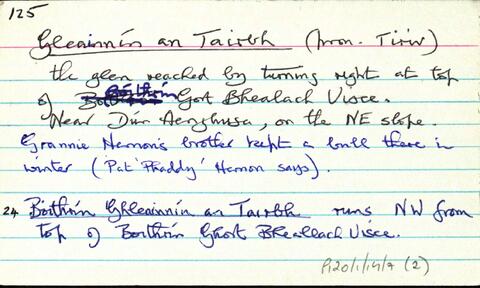 125
Gleainnín an Tairbh (pron. Tiriv)
the glen reached by turning right at top
of Bóithrín Gort Bhealach Uisce.
Near Dún Aenghusa, on the NE slope.
Grannie Hernon's brother kept a bull there in
winter (Pat 'Phaddy' Hernon says).
24 Bóithrín Ghleainnín an Tairbh runs NW from
top of Boithrín Ghort Bheallach Uisce.
P120/1/14/7 (2)